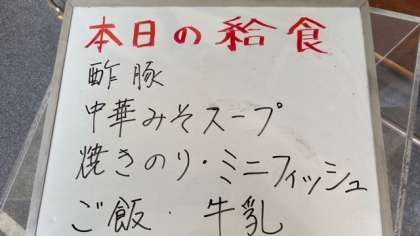 本日の給食
酢豚
中華みそスープ
焼きのり・ミニフィッシュ
ご飯・牛乳